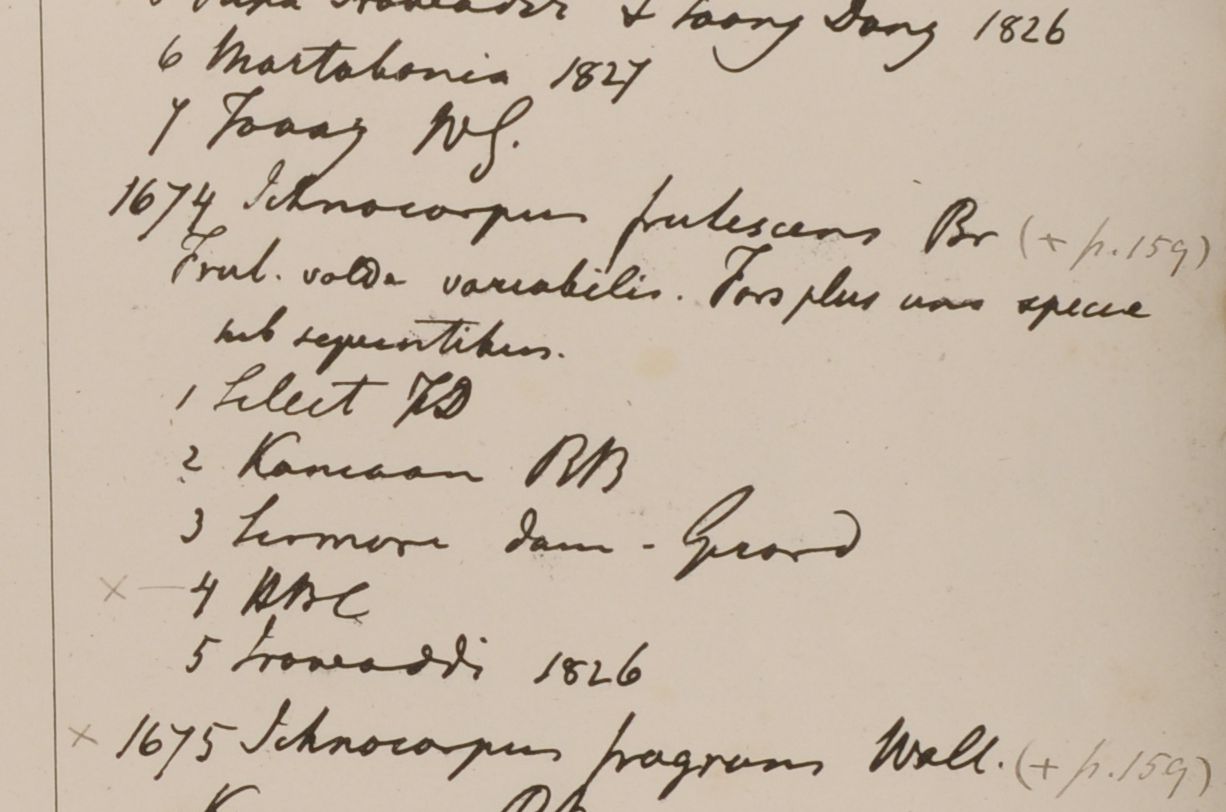 & Taong Dong 1826
6 Martabania 1827
7 Tavoy WG.
1674 Ichnocarpus frutescens Br (+ p. 159)
Frut. valde variabilis. Fors plus una specie
sub sequentibus.
1 Silect FD
2 Kamaon RB
3 Sirmore dam - Gerard
× — 4 HBC
5 Irawaddi 1826
× 1675 Ichnocarpus fragrans Wall. (+ p. 159)